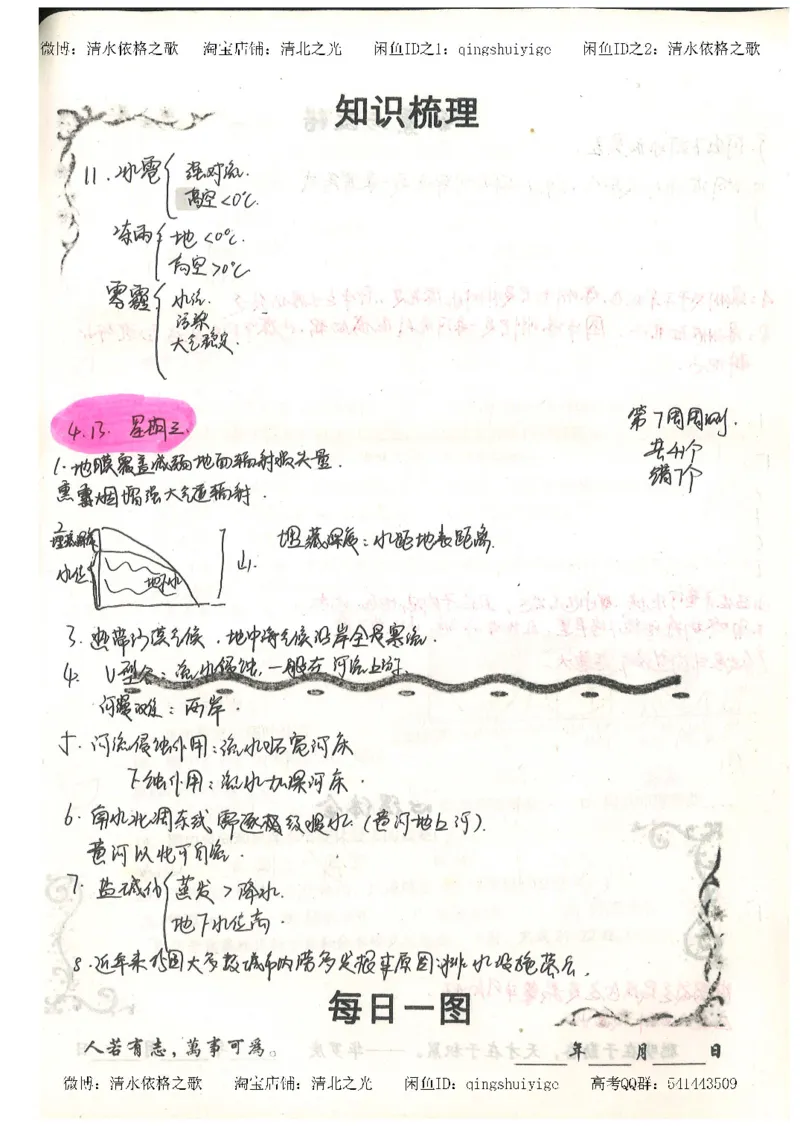 微博：清水依格之歌 淘宝店铺：清北之光 闲鱼ID之1：qingshuiyige 闲鱼ID之2：清水依格之歌
知识梳理
11. 冰雹 强对流.
高空<0℃.
冻雨 地<0℃.
高空>0℃
雾霾 水汽.
污染
大气稳定.
4.13. 星期三.
第7周周测.
共44个
错7个
1.地膜覆盖减弱地面辐射损失量.
熏烟增强大气逆辐射.
2.
埋藏深度
水位
地下水
山.
埋藏深度：水距地表距离.
3. 热带沙漠气候.地中海气候沿岸全是寒流.
4. U型谷：流水侵蚀.一般在河流上游.
河漫滩：两岸.
5. 河流侵蚀作用：流水拓宽河床
下蚀作用：流水加深河床.
6. 南水北调东线需逐极级提水.(黄河地上河).
黄河以北可自流.
7. 盐碱化 蒸发>降水.
地下水位高.
8.近年来我国大多数城市内涝多发根本原因:排水设施落后.
每日一图
人若有志，萬事可為。
年 月 日
微博：清水依格之歌 淘宝店铺：清北之光 闲鱼ID：qingshuiyige 高考QQ群：541443509